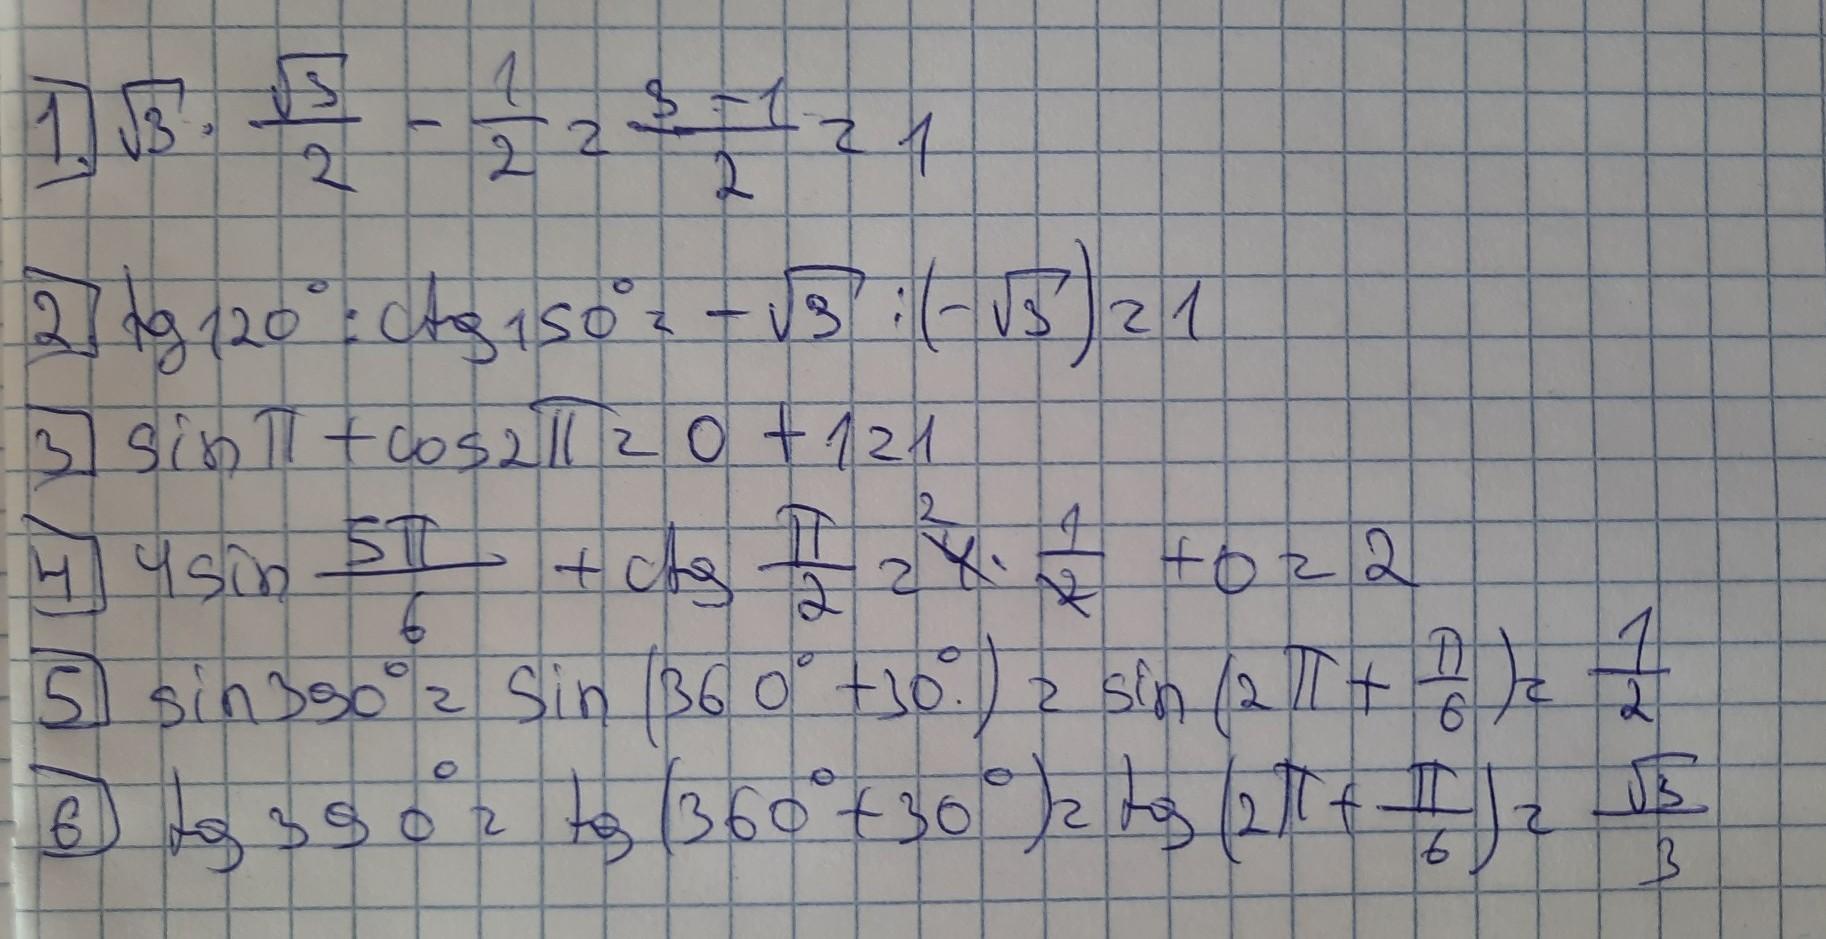 1. √3 · √3/2 - 1/2 = (3 - 1)/2 = 1
2 tg 120° : ctg 150° = - √3 : (-√3) = 1
3 sin π + cos 2π = 0 + 1 = 1
4 4 sin 5π/6 + ctg π/2 = 4² · 1/2 + 0 = 2
5 sin 390° = sin (360° + 30°.) = sin (2π + π/6) = 1/2
6 tg 390° = tg (360° + 30°) = tg (2π + π/6) = √3/3